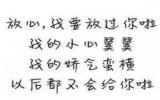 放心，我要放过你啦
我的小心翼翼
我的娇气蛮横
以后都不会给你啦